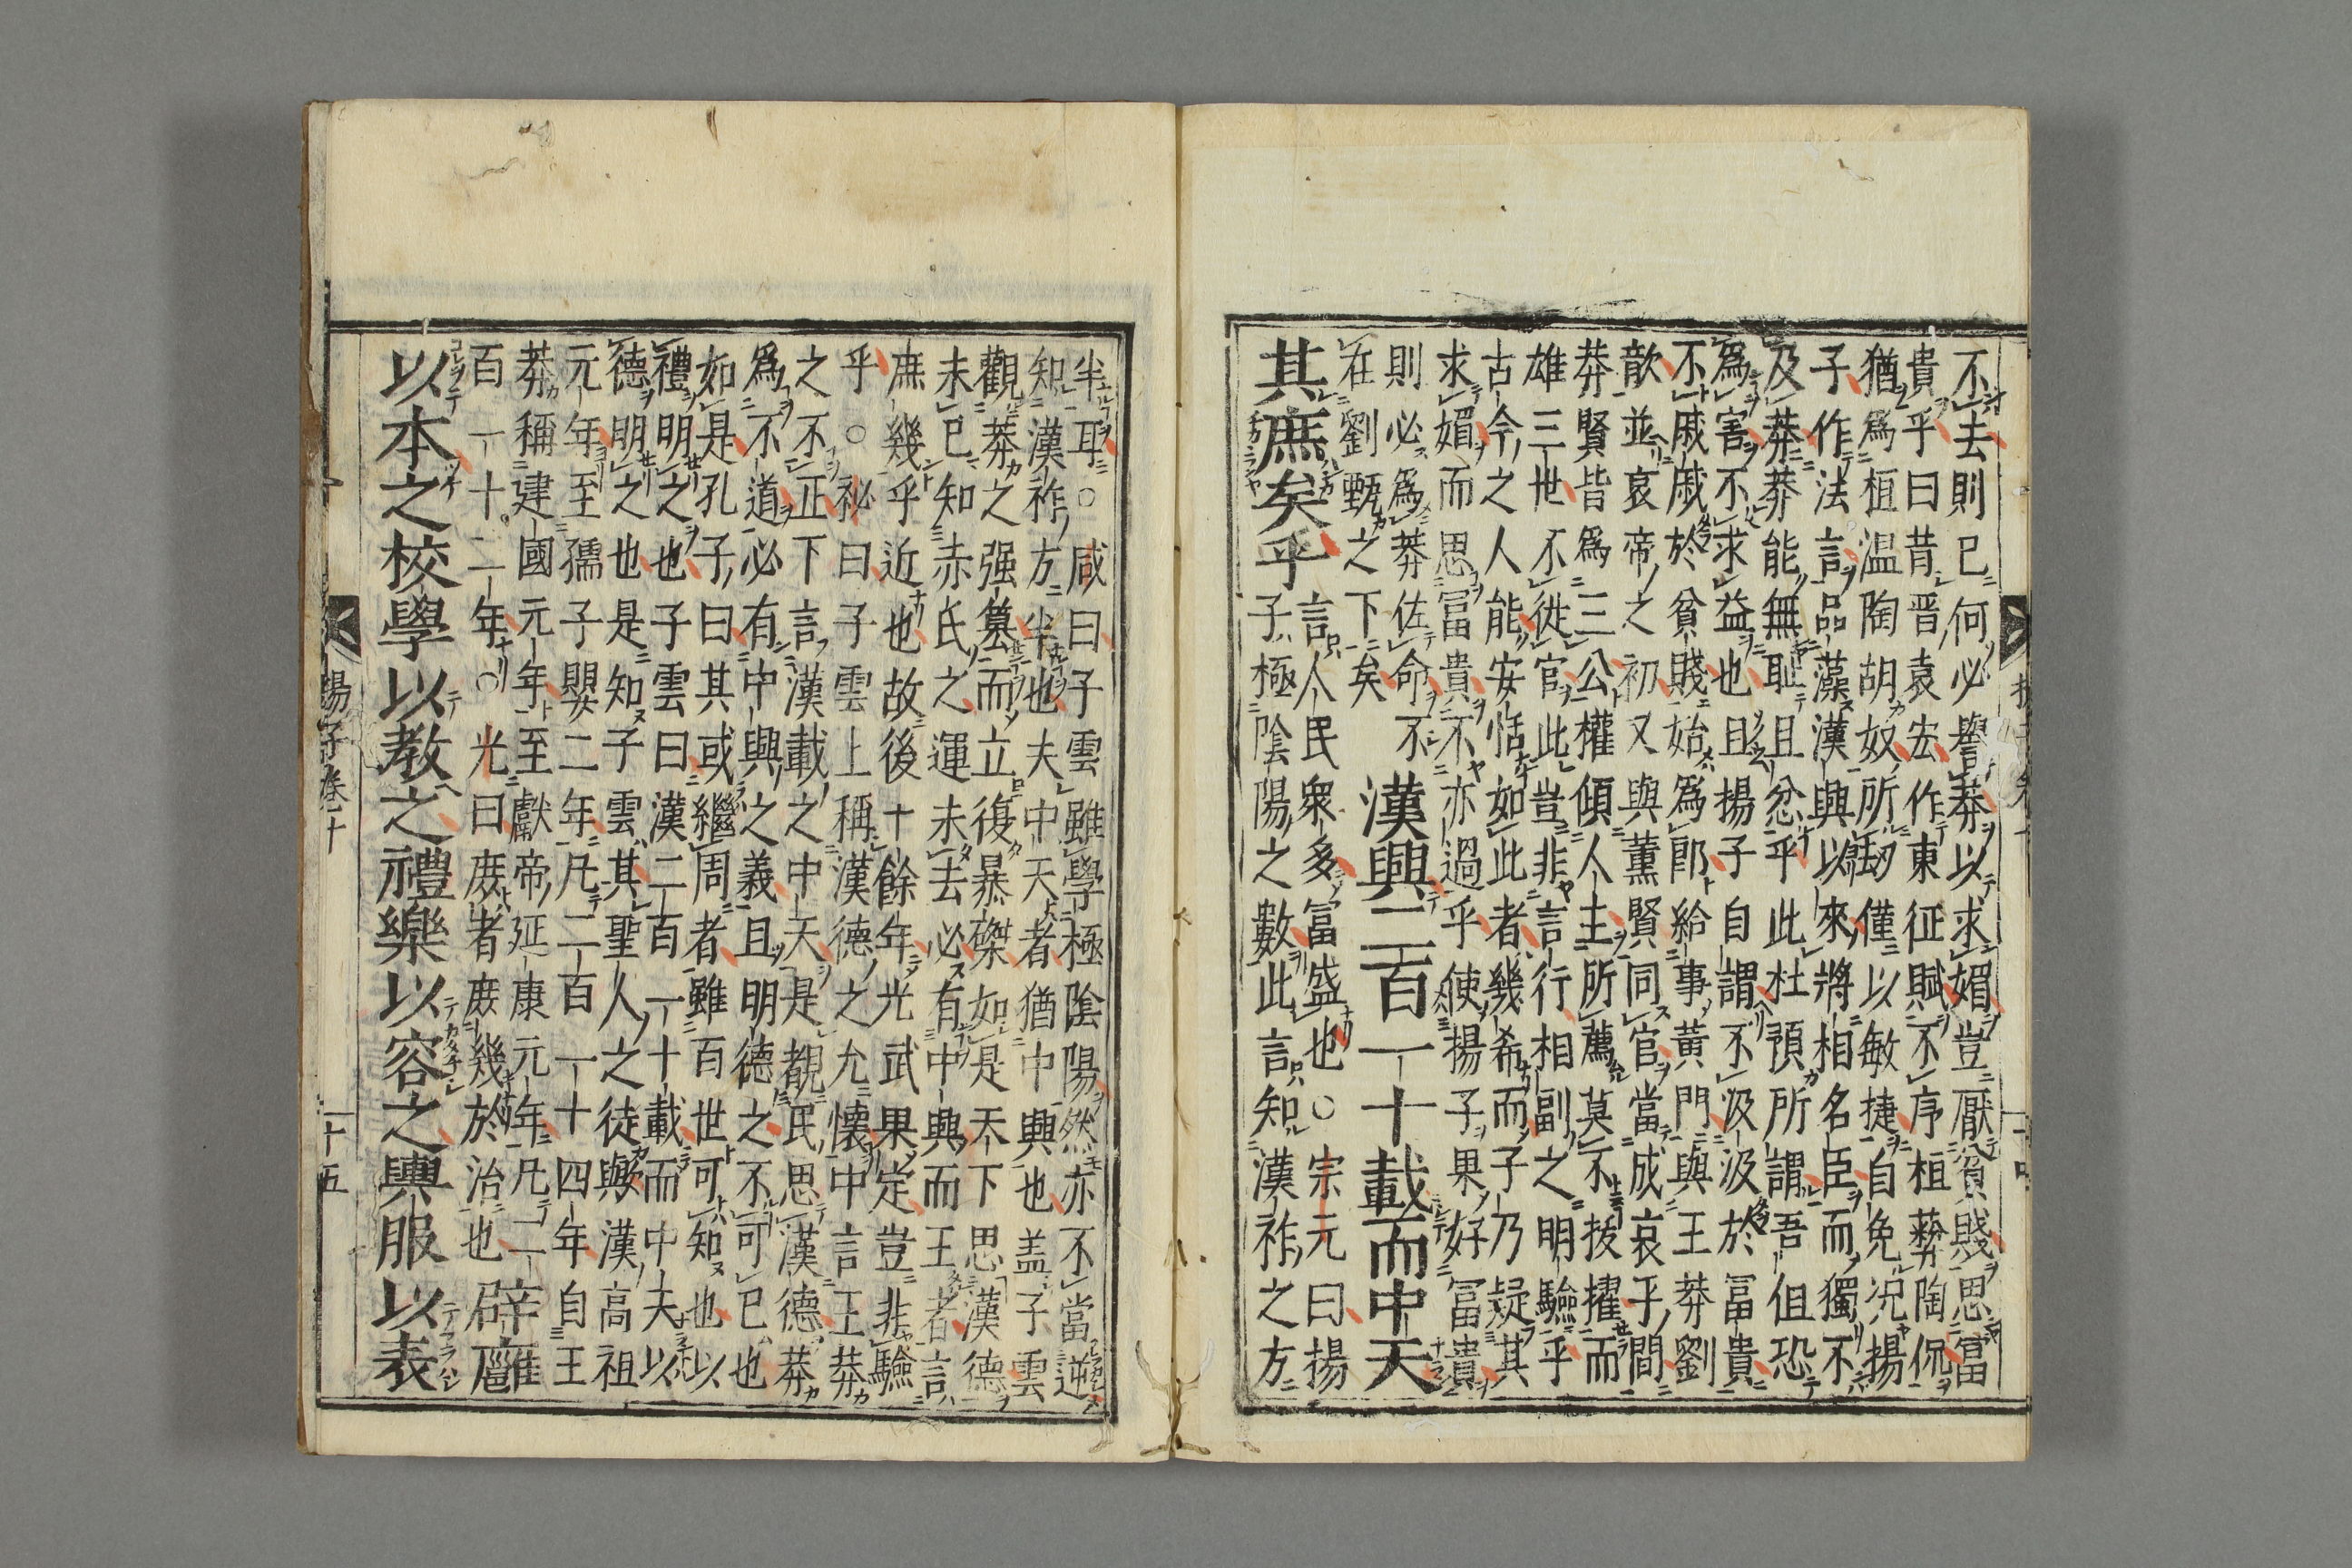 不去則已何必譽莽以求媚豈厭貧賤思富
貴乎曰昔晋袁宏作東征賦不序桓彝陶侃
猶爲桓温陶胡奴所劫僅以敏捷自免况揚
子作法言品藻漢興以來將相名臣而獨不
及莽莽能無耻且忿乎此杜預所謂吾但恐
爲害不求益也且揚子自謂不汲汲於冨貴
不戚戚於貧賤始爲郎給事黄門與王莽劉
歆並哀帝之初又與董賢同官當成哀乎間
莽賢皆爲三公權傾人主所薦莫不拔擢而
雄三世不徙官此豈非言行相副之明驗乎
古今之人能安恬如此者幾希而子乃疑其
求媚而思冨貴不亦過乎使揚子果好冨貴
則必爲莽佐命不
在劉甄之下矣
漢興二百一十載而中天
其庶矣乎
言人民衆多冨盛也○宗元曰揚
子極陰陽之數此言知漢祚之方
半耳○咸曰子雲雖學極陰陽然亦不當逆
知漢祚方半也夫中天者猶中興也盖子雲
觀莽之强簒而立復暴磔如是天下思漢德
未已知赤氏之運未去必有中興而王者言
庶幾乎近也故後十餘年光武果定豈非驗
乎○祕曰子雲上稱漢德之允懷中言王莽
之不正下言漢載之中天是覩民思漢德莽
爲不道必有中興之義且明德之不可已也
如是孔子曰其或繼周者雖百世可知也以
禮明之也子雲曰漢二百一十載而中夫以
德明之也是知子雲其聖人之徒與漢高祖
元年至孺子嬰二年凡二百一十四年自王
莽稱建國元年至獻帝延康元年凡二
百一十二年○光曰庻者庻幾於治也
辟廱
以本之校學以教之禮樂以容之輿服以表
揚子卷十
二十五